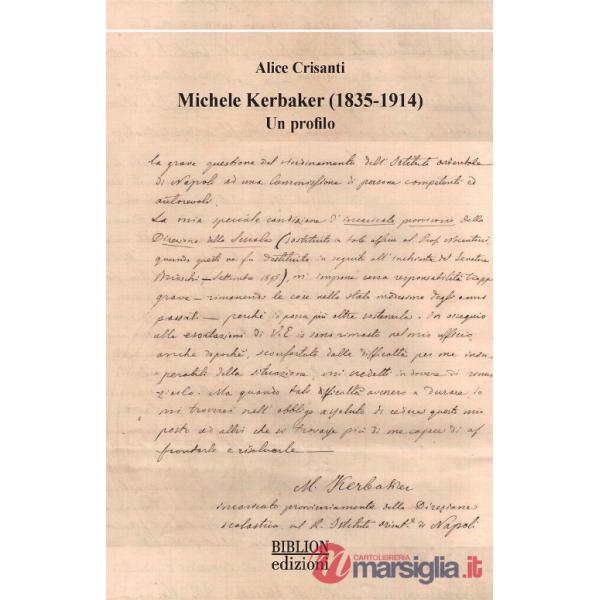 Alice Crisanti
Michele Kerbaker (1835-1914)
Un profilo
la grave questione del riordinamento dell'Istituto orientale
di Napoli ad una Commissione di persone competenti ed
autorevoli.
La mia speciale condizione d'incaricato provvisorio della
Direzione della Scuola (sostituito in tale ufficio al Prof
quando questi ne fu destituito in seguito all'inchiesta del Senatore
Settembre), m'impone una responsabilità troppo
grave — rimanendo le cose nello stato medesimo degli anni
passati — perchè io possa più oltre sostenerla. Per ossequio
alle esortazioni di V.E. io sono rimasto nel mio ufficio,
anche dopochè, sconfortato dalle difficoltà per me insu-
perabili della situazione, mi credetti in dovere di rinun-
ziarlo. Ma quando tali difficoltà avessero a durare io
mi troverei nell'obbligo assoluto di cedere questo mio
posto ad altri che si trovasse più di me capace di af
frontarle e risolverle —
M. Kerbaker
incaricato provvisoriamente della Direzione
scolastica nel R. Istituto orient.e di Napoli
BIBLION
edizioni
CARTOLIBRERIA
marsiglia.it